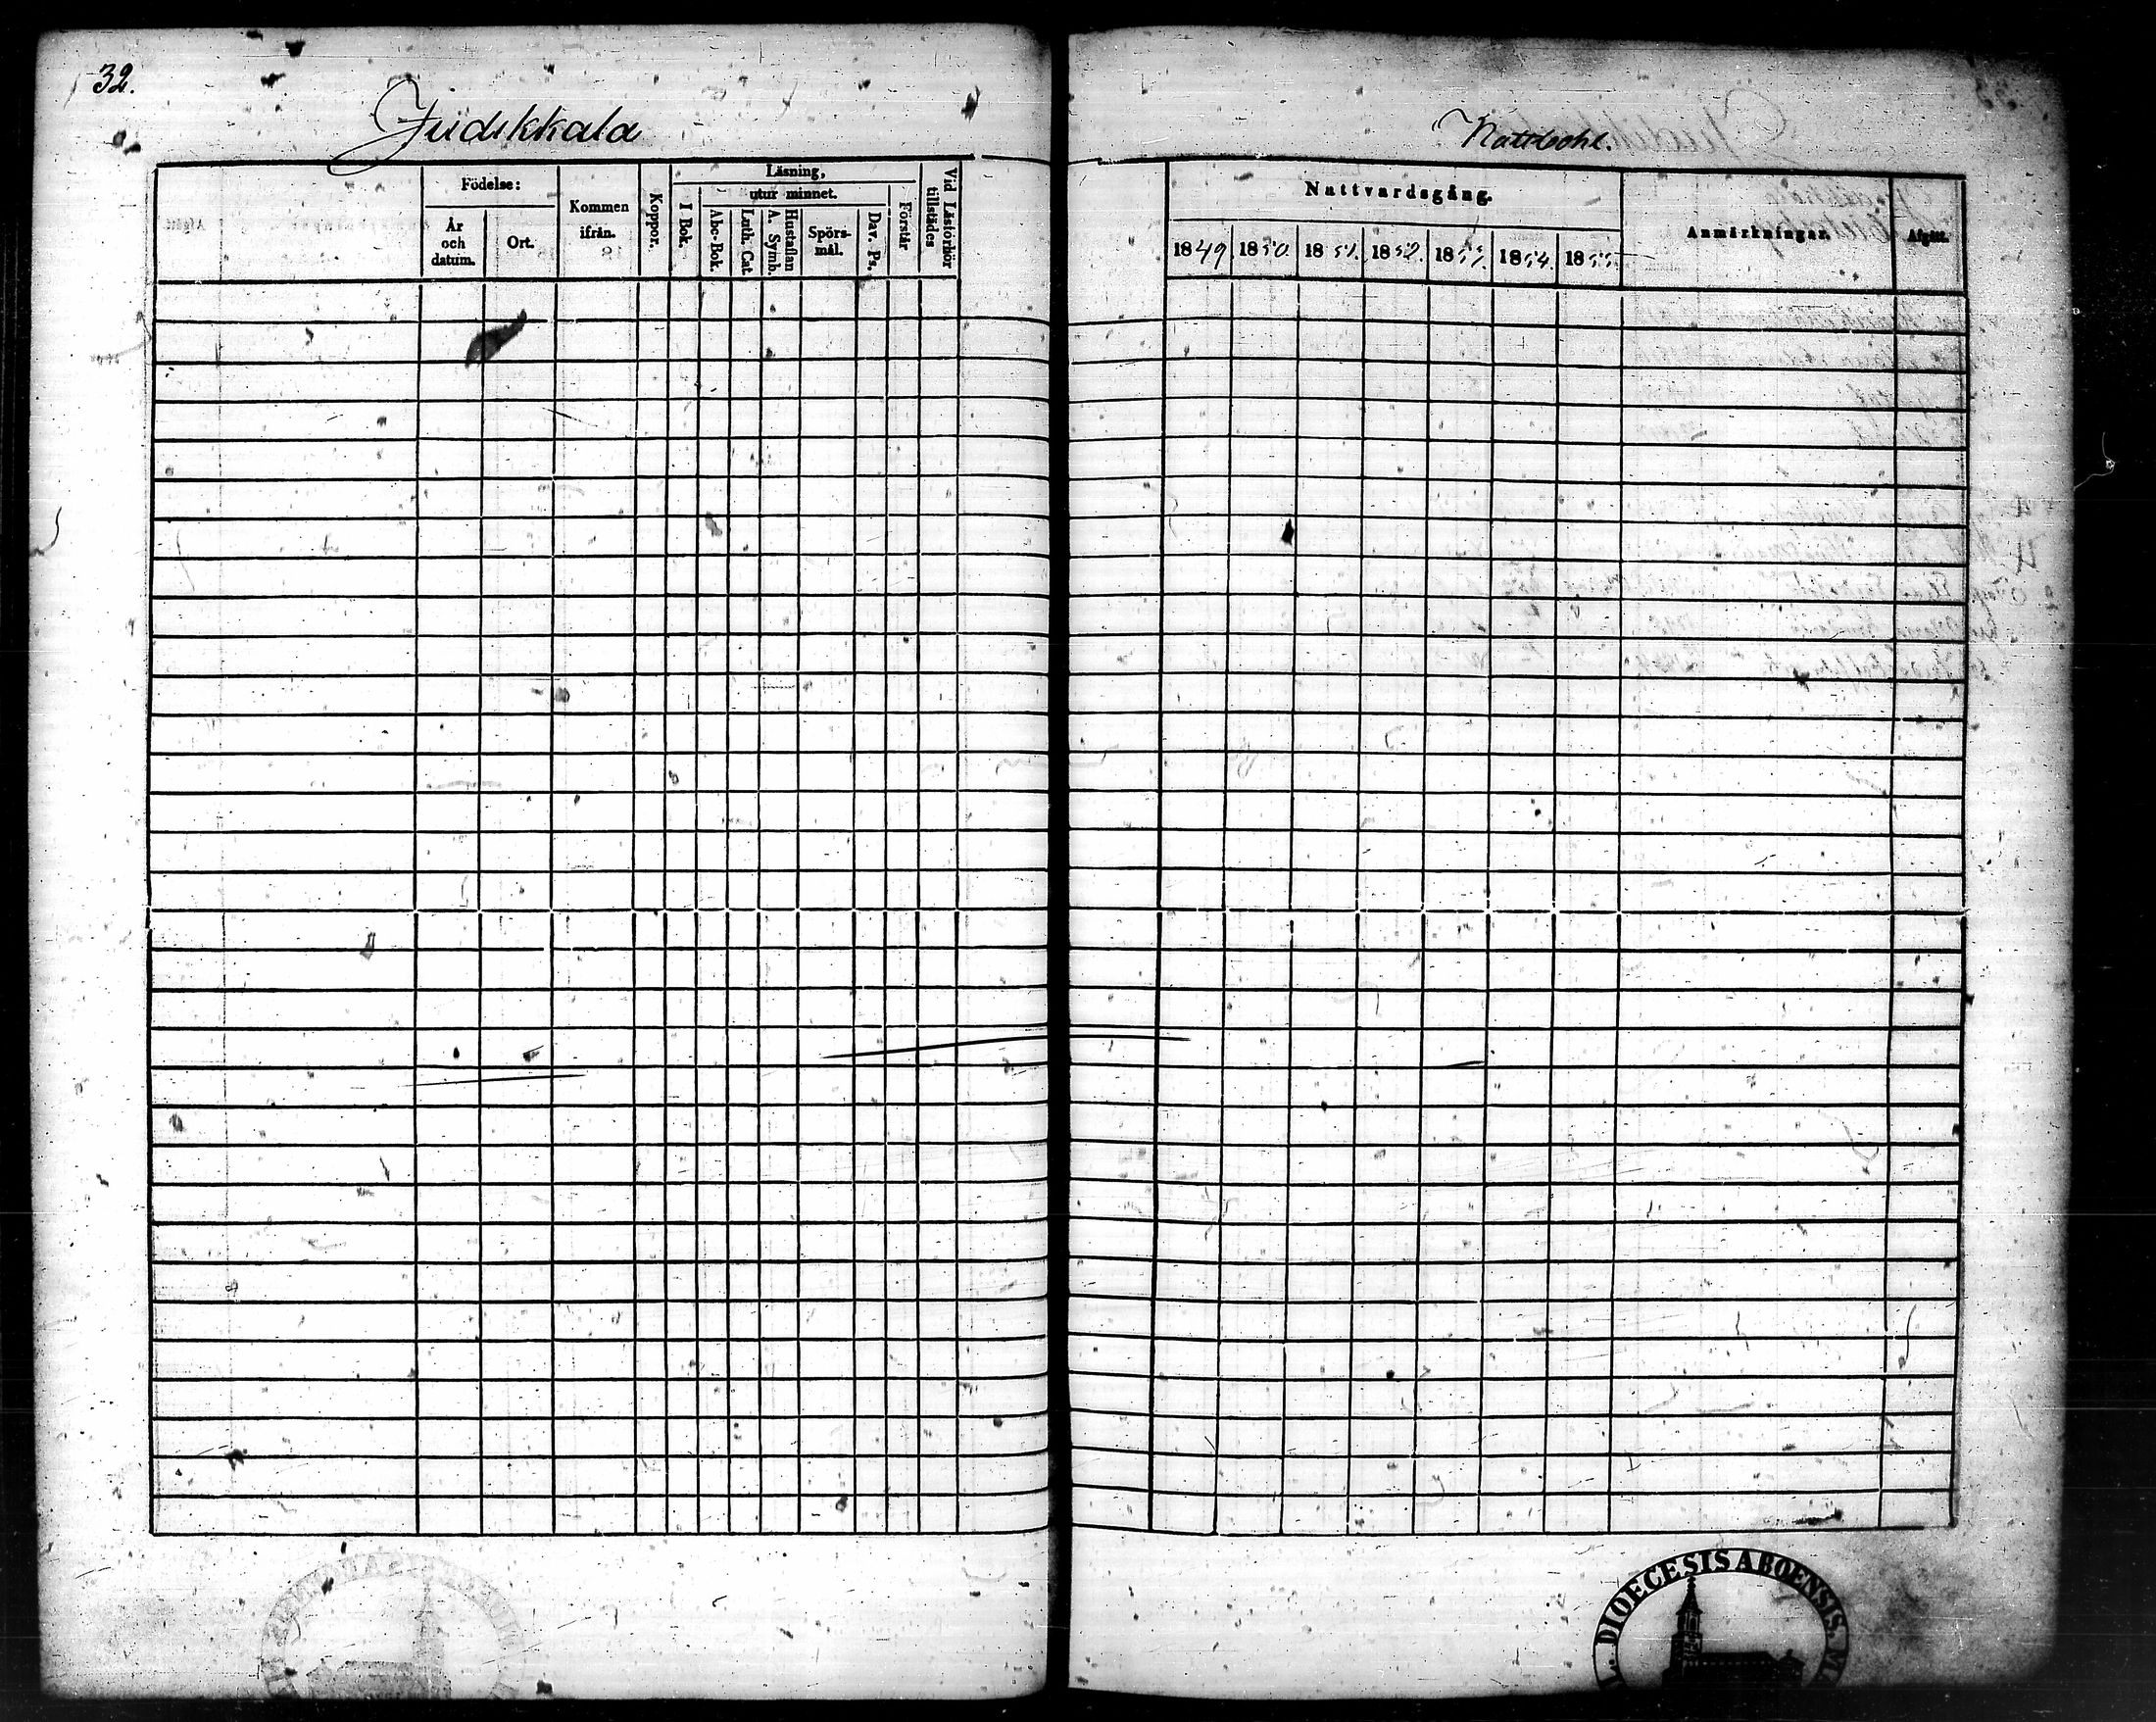 32.
Judikkala
Födelse:
År och datum.
Ort.
Kommen ifrån.
Koppor.
Läsning,
utur minnet.
I Bok.
Abc-Bok.
Luth. Cat.
A. Symb.
Hustaflan
Spörs-mål.
Dav. Ps.
Förstår
Vid Läsförhör tillstädes
Nattvardsgång.
1849 1850. 1851. 1852. 1853. 1854. 1855
Anmärkningar.
Afgått.
DIOECESIS ABOENSIS.